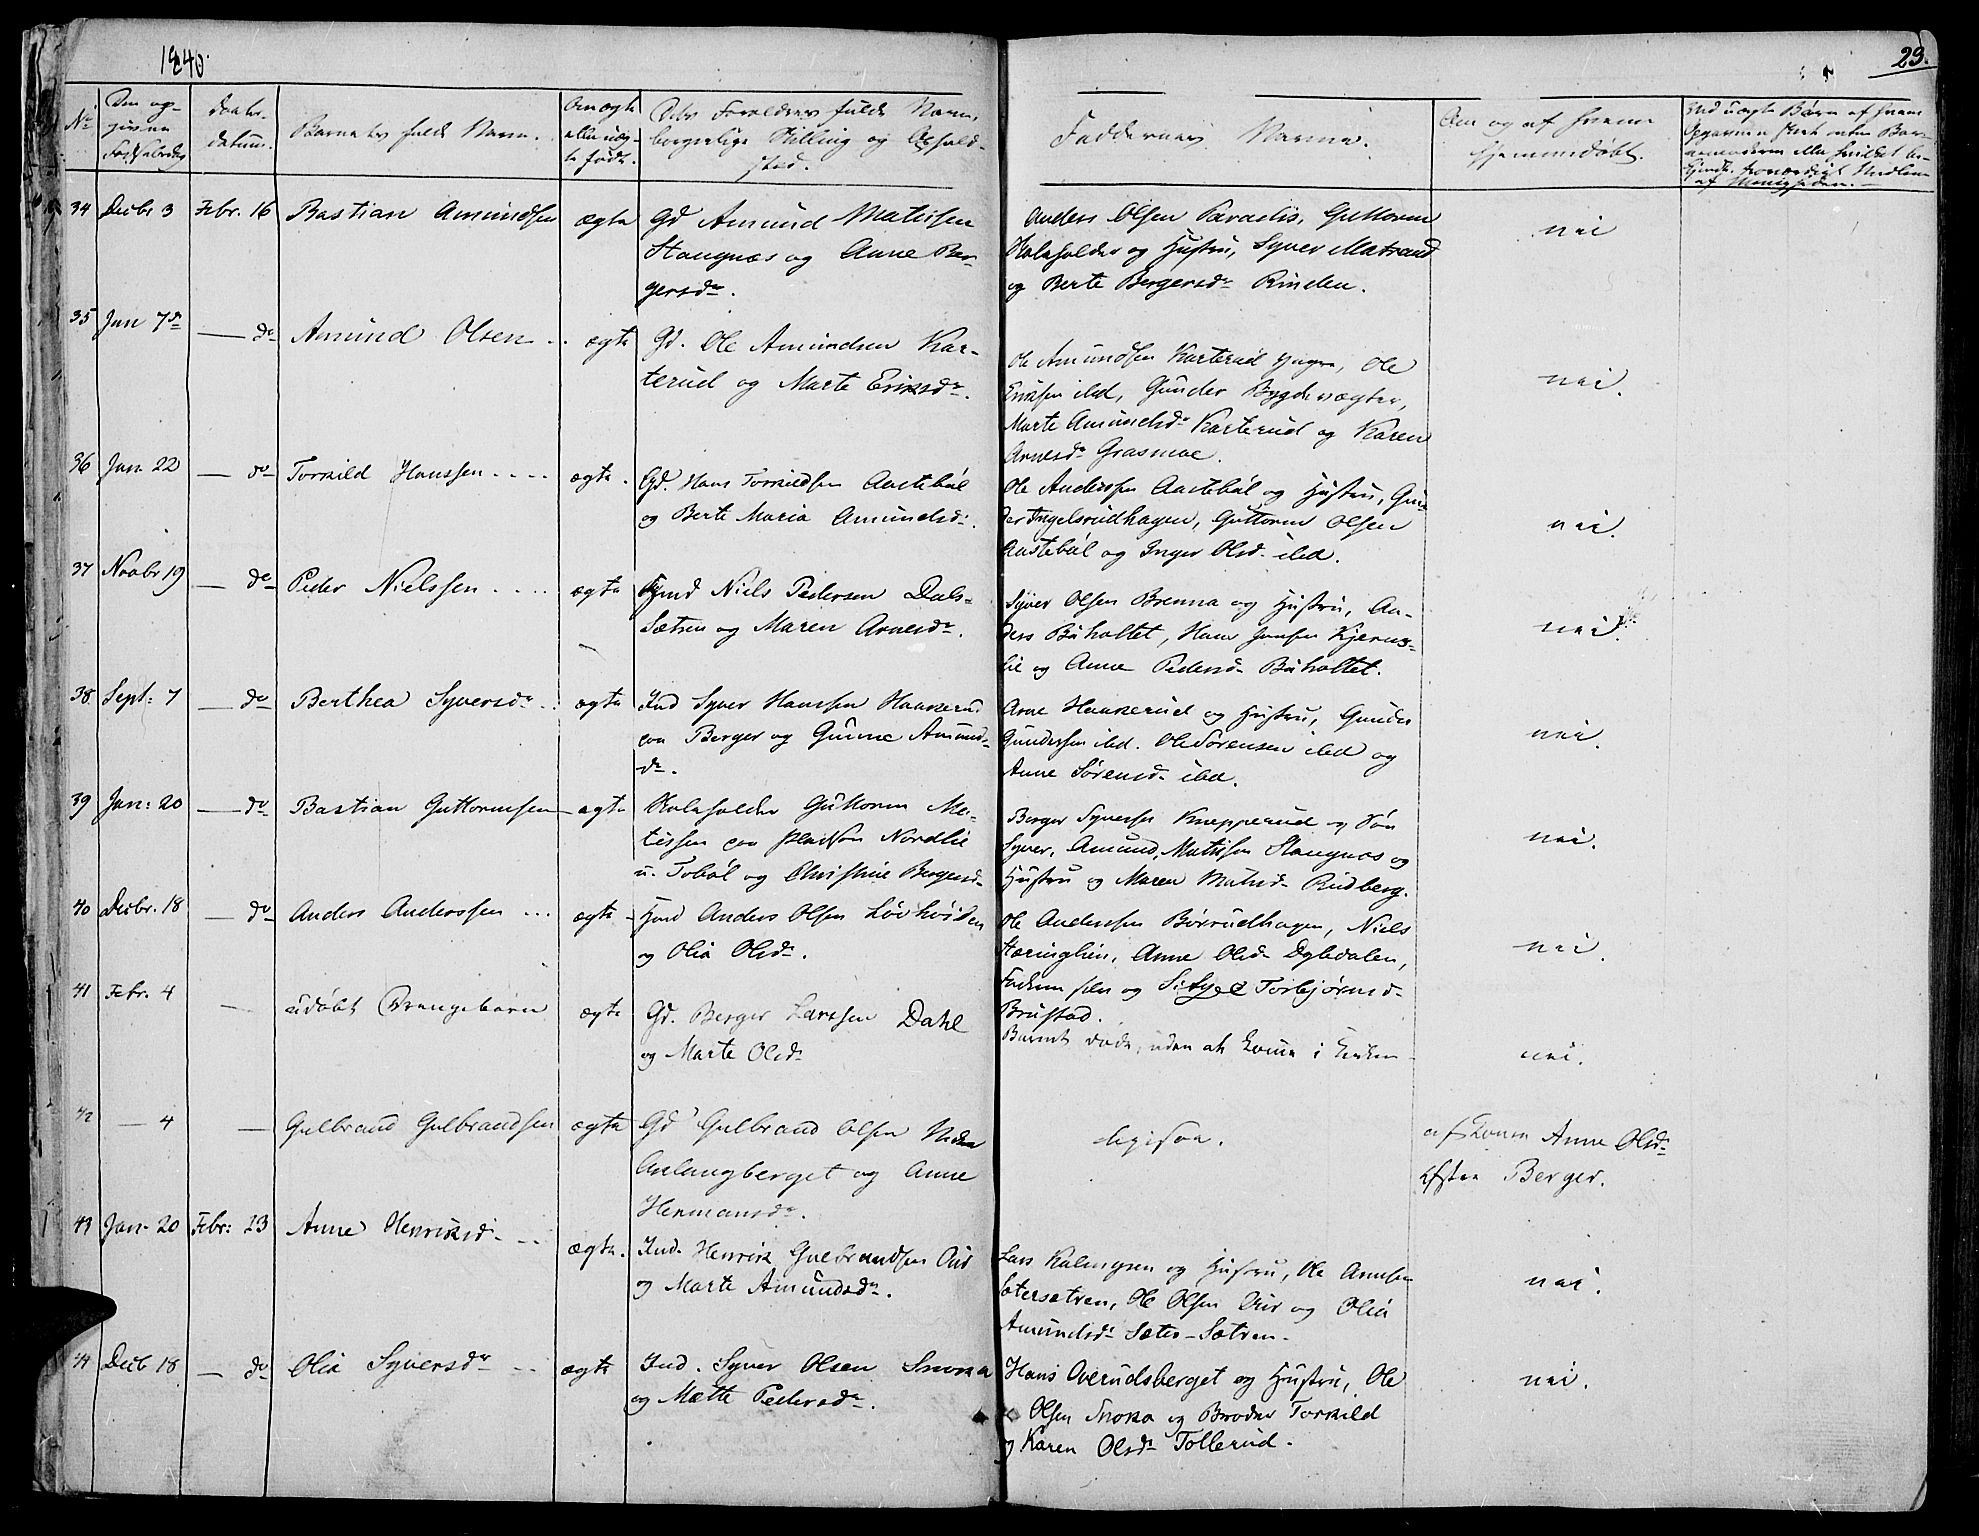 1840.
23.
No
Den op-
givne
Fødselsdag
Daabs-
datum.
Barnets fulde Navn.
Om ægte
eller uæg-
te født.
Dets Forældres fulde Navn,
borgerlige Stilling og Ophold-
sted.
Faddernes Navne.
Om og af hvem
hjemmedøbt.
Ved uægte Børn af hvem
34 Decbr 3 Febr. 16 Bastian Amundsen ægte Gd Amund Matissen
Stangnæs og Anne Ber-
gersdr.
Anders Olsen Paradis, Guttorm
og Hustru, Syver Matrand
og Berte Bergersdr Rinden.
nei
35 Jan 7de — do Amund Olsen ægte Gd. Ole Amundsen Kar-
terud og Marte Eriksdr.
Ole Amundsen Karterud yngre, Ole
Eriksen ibd, Gunder Bygdevægter,
Marte Amundsdr Karterud og Karen
Arnesdr Grasmoe.
nei.
36 Jan 22 — do Torkild Hanssen ægte. Gd. Hans Torkildsen Aastebøl
og Berte Maria Amundsdr.
Ole Anderssen Aastebøl og Hustru, Gun-
der Ingelsrudhagen, Guttorm Olsen
Aastebøl og Inger Olsd. ibd.
nei.
37 Novbr 19 — do Peder Nielssen ægte Hmd Niels Pedersen Dals-
Sætren og Maren Arnesdr.
Syver Olsen Brenna og Hustru, An-
ders Buholtet, Hans Jensen Kjerns-
lie og Anne Pedersd. Buholtet.
nei.
38 Sept: 7 — do Berthea Syversdr ægte Ind Syver Hanssen Haakerud
paa Berger og Gunne Amunds-
dr.
Arne Haakerud og Hustru, Gunder
Gundersen ibd. Ole Sørensen ibd og
Anne Sørensd. ibd.
nei.
39 Jan: 20 — do Bastian Guttormsen ægte Guttorm Ma-
tissen paa Pladsen Nordlie
u. Tobøl og Christine Bergersd.
Berger Syversen Knapperud og Søn
Syver, Amund Matissen Stangnæs og
Hustru og Maren Matisd. Rudberg.
nei.
40 Decbr. 18 — do Anders Anderssen ægte Hmd Anders Olsen Løvhöiden
og Olia Olsdr.
Ole Anderssen Börrudhagen, Niels
Anne Olsd. Dybdalen,
Faderen selv og Torbjørnsd.
Brustad.
nei.
41 Febr. 4 — udøbt Drengebarn ægte Gd. Berger Larssen Dahl
og Marte Olsdr
Barnet døde, uden at komme i Kirken
nei.
42 — 4 — Gulbrand Gulbrandsen ægte Gd Gulbrand Olsen
og Anne
Hermansdr.
ligesaa.
af Konen Anne Olsdr
Berger.
43 Jan. 20 Febr: 23 Anne Henriksd. ægte. Ind. Henrik Gulbrandsen Aur
og Marte Amundsdr.
Lars og Hustru, Ole Arnesen
Sætersætren, Ole Olsen Aur og Olia
Amundsdr Sæter-Sætren.
nei.
44 Decb 18 — do Olia Syversdr ægte Ind. Syver Olsen Snoka
og Mætte Pedersdr.
Hans Overudsberget og Hustru, Ole
Olsen Snoka og Broder Torkild
og Karen Olsdr Tollerud.
nei.